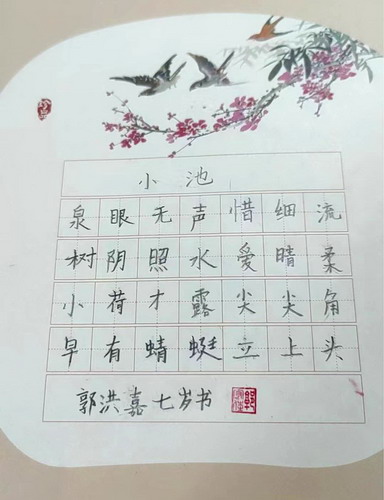 小池
泉眼无声惜细流
树阴照水爱晴柔
小荷才露尖尖角
早有蜻蜓立上头
郭洪嘉七岁书